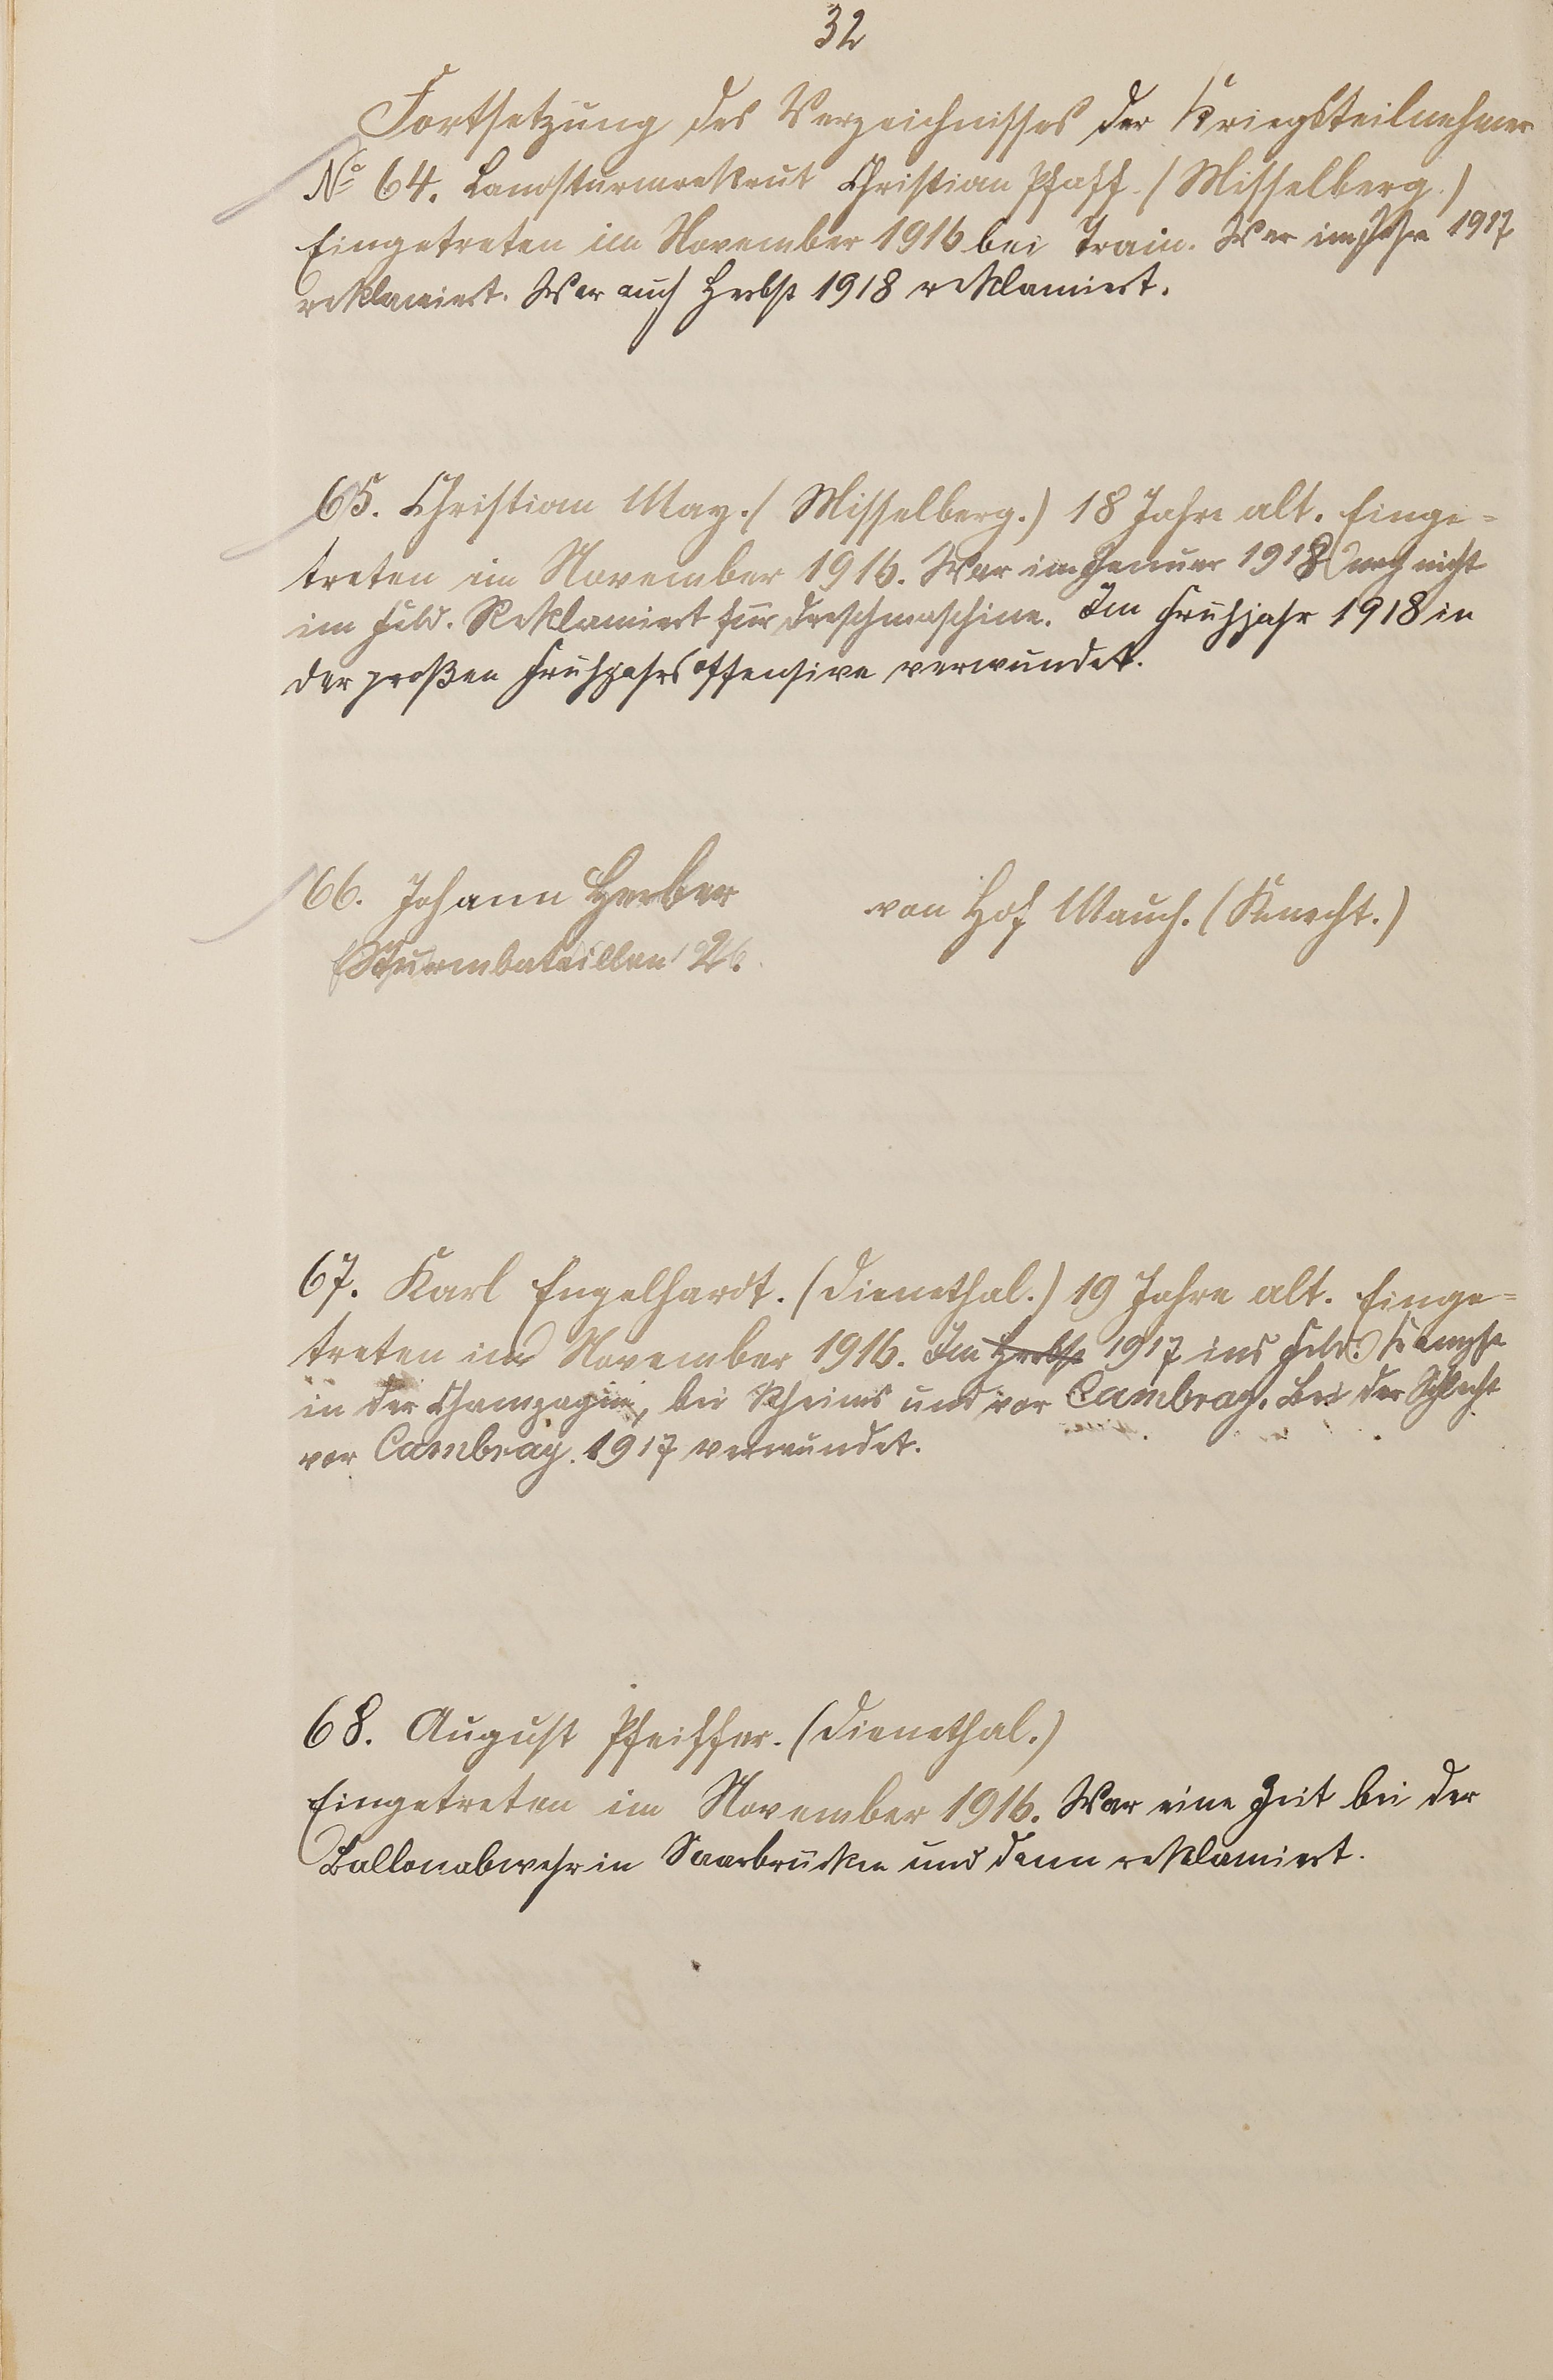 32
Fortsetzung des Verzeichnisses der Kriegsteilnehmer
No 64. Landsturmrekrut Christian Pfaff. (Misselberg.)
Eingetreten im November 1916 bei Train. War im Jahre 1917
reklamiert. War auch Herbst 1918 reklamiert.
65. Christian May. (Misselberg.) 18 Jahre alt. Einge=
treten im November 1916. War im Januar 1918 noch nicht
im Feld. Reklamiert für Dreschmaschine. Im Frühjahr 1918 in
der großen Frühjahrsoffensive verwundet.
66. Johann Herber von Hof Mauch. (Knecht.)
Sturmbataillon
67. Karl Engelhardt. (Dienethal.) 19 Jahre alt. Einge=
treten im November 1916. Im Herbst 1917 ins Feld. Kämpfe
in der Champagne, bei Rheims und vor Cambray. Bei der Schlacht
vor Cambray. 1917 verwundet.
68. August Pfeiffer. (Dienethal.)
Eingetreten im November 1916. War eine Zeit bei der
Ballonabwehr in Saarbrücken und dann reklamiert.